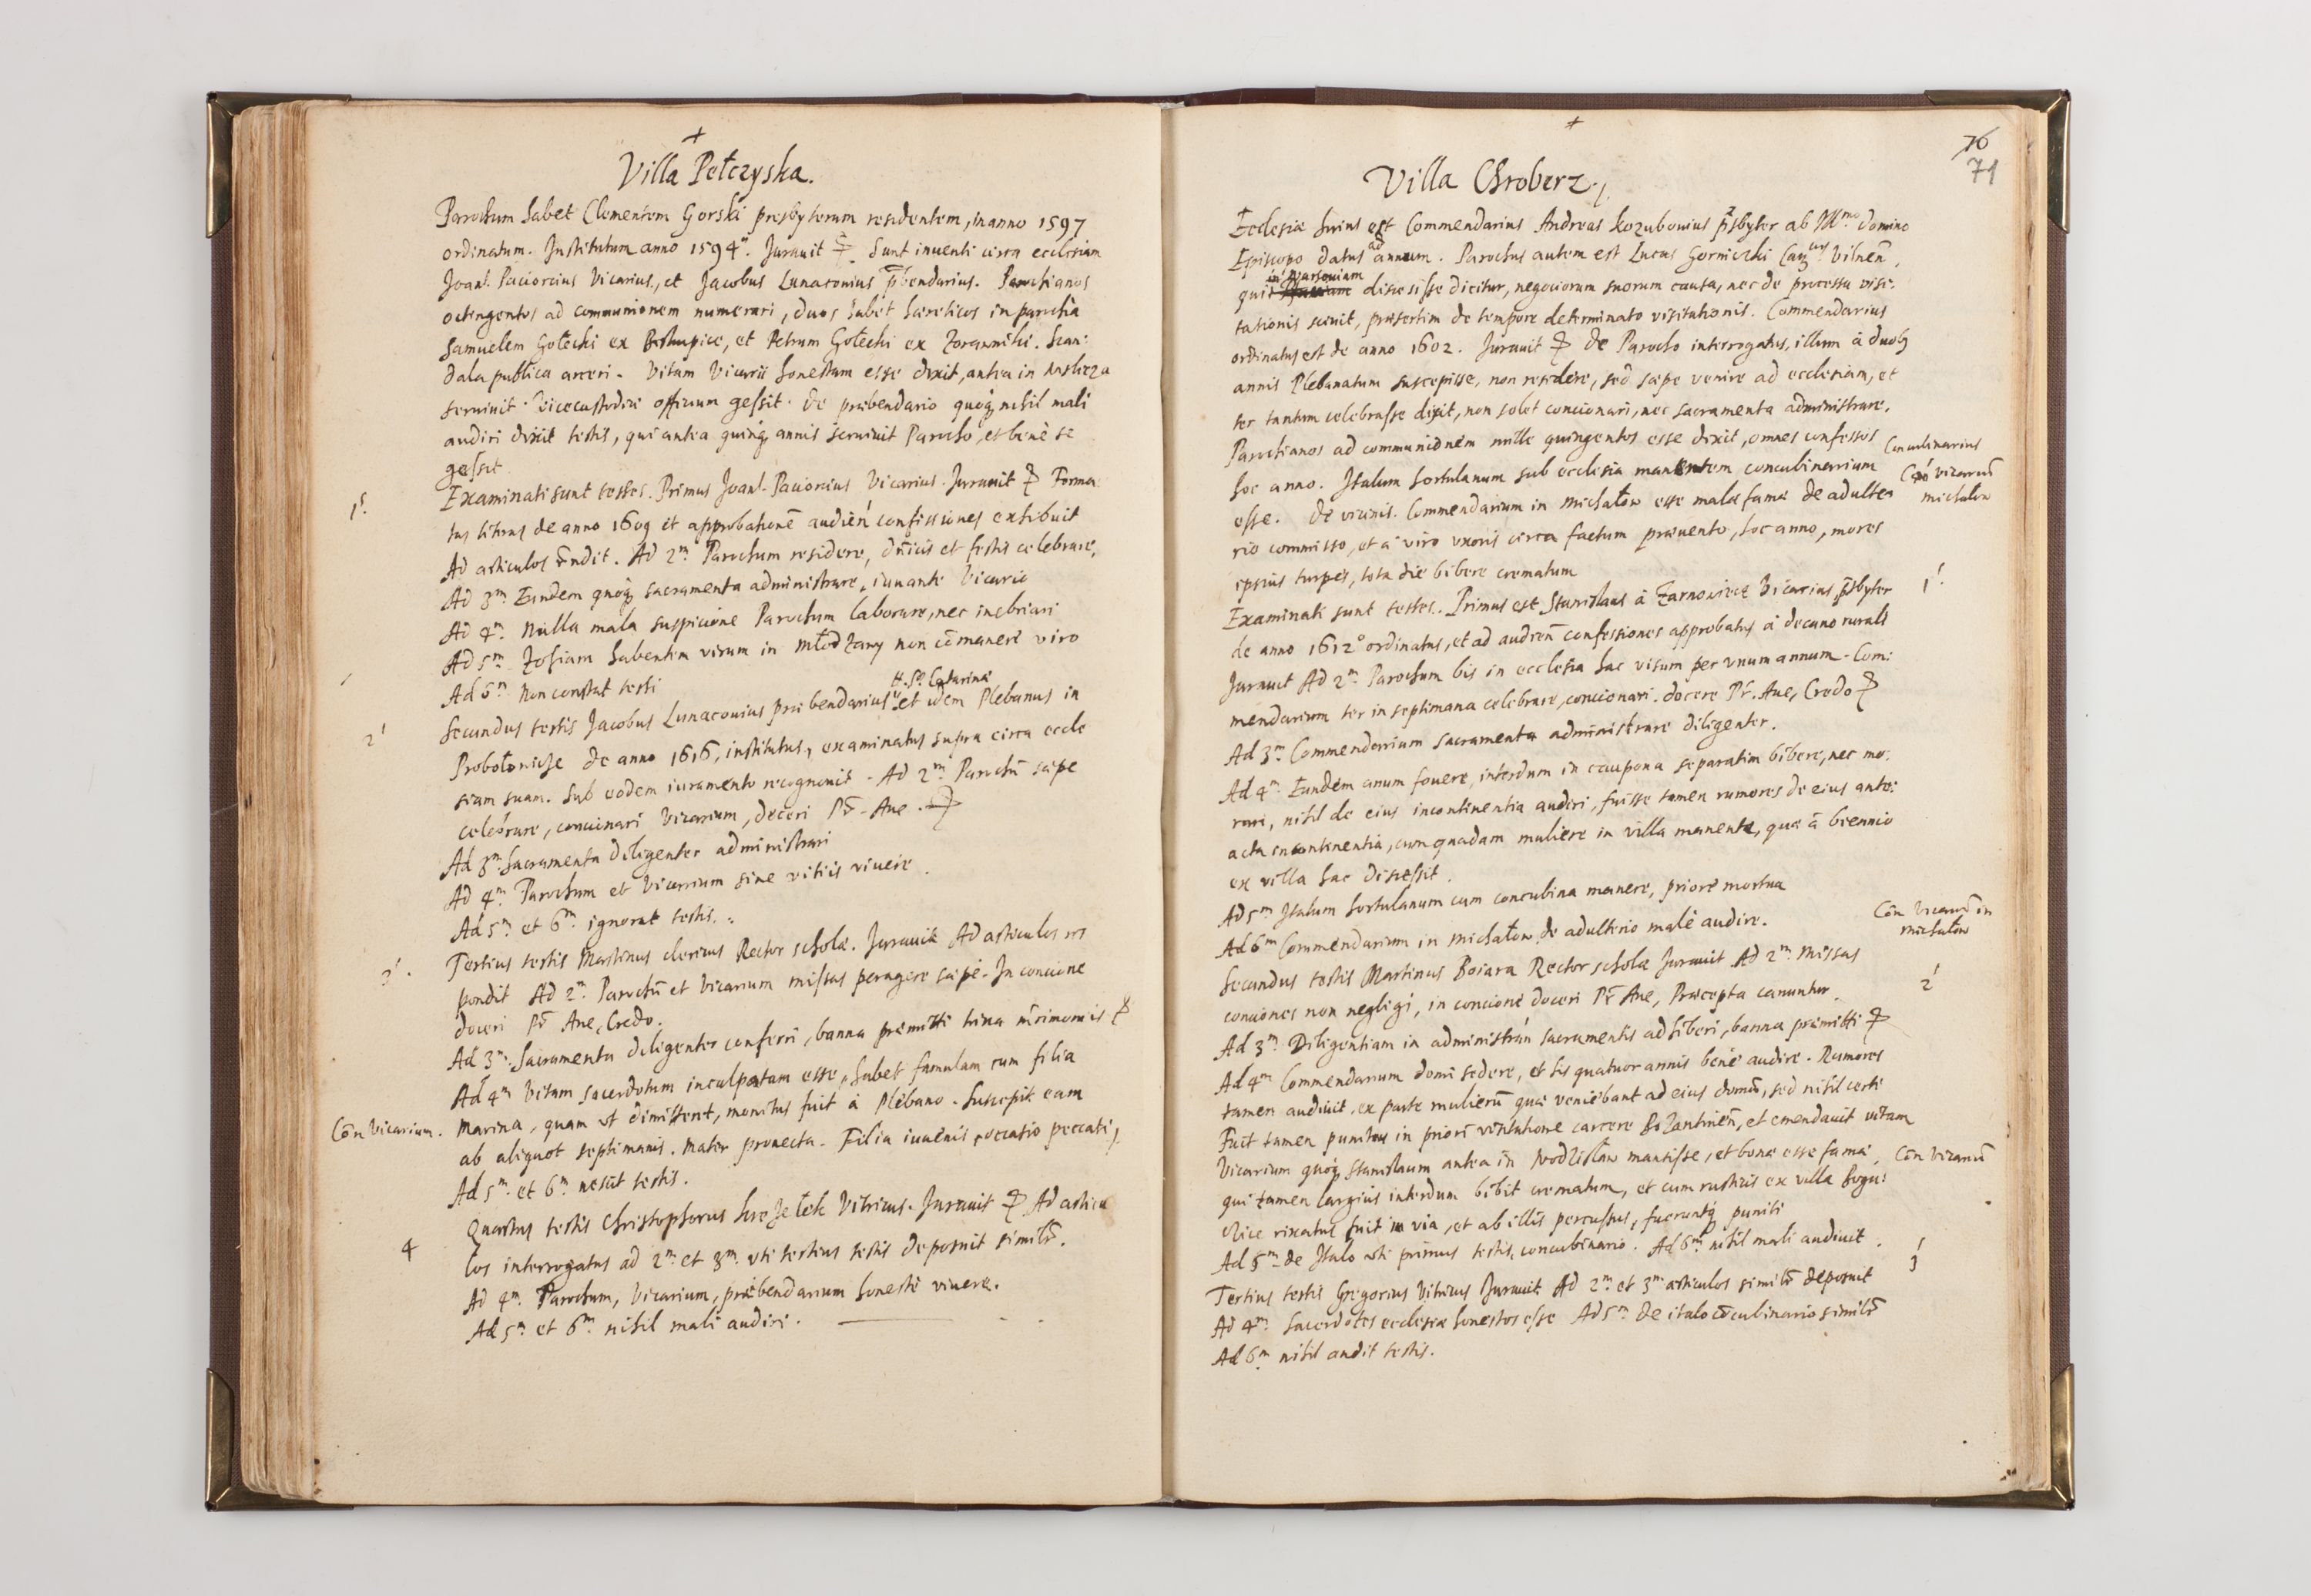 +
Villa Pełczyska.
Parochum habet Clementem Gorski presbyterum residentem, in anno 1597
ordinatum. Institutum anno 1594°. Jurauit Sunt inuenti circa ecclesiam
Joan. Paciorcius Vicarius, et Jacobus Lunaconius pbendarius. Parochianos
octingentos ad communionem numerari, duos habet haereticos in parochia
Samuelem Gołecki ex et Petrum Gołecki ex Zorawniki. Scan:
dala publica arceri. Vitam Vicarii honestam esse dixit, antea in
seruiuit. Vicecustodiae officium gessit. De praebendario quoq nihil mali
audiri dixit testis, qui antea quinq annis seruiuit Parocho, et bene se
gessit
1s. Examinati sunt testes. Primus Joan. Paciorcius Vicarius. Jurauit Forma
tas literas de anno 1609 et approbationē audien confessiones exhibuit
Ad articulos rndit. Ad 2m Parochum residere, dnicis et festis celebrare,
Ad 3m Eundem quoq sacramenta administrare, iuuante Vicario
Ad 4m Nulla mala suspicione Parochum laborare, nec inebriari
Ad 5m Zofiam habentem virum in Młodzawy non cōmanere viro
Ad 6m Non constat testi
H. St Catarinae
2! Secundus testis Jacobus Lunaconius praebendarius et idem Plebanus in
Probołowice de anno 1616, institutus, examinatus supra circa eccle
siam suam. Sub eodem iuramento recognouit. Ad 2m Parochū saepe
celebrare, concionari Vicarium, doceri Pr. Aue.
Ad 3m Sacramenta diligenter administrari
Ad 4m Parochum et Vicarium sine vitiis viuere.
Ad 5m et 6m ignorat testis.
3! Tertius testis Martinus clericus Rector scholae. Jurauit Ad articulos res
pondit Ad 2m Parochū et Vicarium missas peragere saepe. In concione
doceri Pr Aue, Credo.
Ad 3m Sacramenta diligenter conferri, banna praemitti trina mrimoniis
Ad 4m Vitam sacerdotum inculpatam esse, habet famulam cum filia
Cōn Vicarium. Marina, quam vt dimitteret, monitus fuit à Plebano. Suscepit eam
ab aliquot septimanis. Mater prouecta. Filia iuuenis, occasio peccati,
Ad 5m et 6m nescit testis.
4 Quartus testis Christophorus Vitricus. Jurauit Ad articu
los interrogatus ad 2m et 3m vti tertius testis deposuit similr.
Ad 4m Parochum, Vicarium, praebendarium honeste viuere.
Ad 5m et 6m nihil mali audiri.
+
76
71
Villa Chroberz.
Ecclesiae huius est Commendarius Andreas Kozubouius psbyter ab Illmo Domino
Episcopo datus ad annum. Parochus autem est Lucas Gornicki Can Vilnen,
in Warsouiam
qui discessisse dicitur, negociorum suorum causa, nec de processu visi:
tationis sciuit, praesertim de tempore determinato visitationis. Commendarius
ordinatus est de anno 1602. Jurauit De Parocho interrogatus, illum à duobs
annis Plebanatum suscepisse, non residere, sed saepe venire ad ecclesiam, et
ter tantum celebrasse dixit, non solet concionari, nec sacramenta administrare,
Parochianos ad communionem mille quingentos esse dixit, omnes confessos
hoc anno. Italum hortulanum sub ecclesia manentem concubinarium
Concubinarius
esse. De vicinis. Commendarium in Michałow esse malae famae de adulte
Con vicarium
Michalow
rio commisso, et à viro vxoris circa factum praeuento, hoc anno, mores
ipsius turpes, tota die bibere crematum
Examinati sunt testes. Primus est Stanislaus à Zarnowiecz Vicarius, psbyter 1!
de anno 1612° ordinatus, et ad audien confessiones approbatus à decano rurali
Jurauit Ad 2m Parochum bis in ecclesia hac visum per vnum annum. Com:
mendarium ter in septimana celebrare, concionari. docere Pr. Aue, Credo
Ad 3m Commendarium sacramenta administrare diligenter.
Ad 4m Eundem anum fouere, interdum in caupona separatim bibere, nec mo:
rari, nihil de eius incontinentia audiri, fuisse tamen rumores de eius ante
acta incontinentia, cum quadam muliere in villa manente, quae à biennio
ex villa hac discessit.
Ad 5m Italum hortulanum cum concubina manere, priore mortua
Ad 6m Commendarium in Michałow de adulterio male audire.
Cōn Vicariū in
Michalow
Secundus testis Martinus Boiara Rector scholae Jurauit Ad 2m Missas
2!
conciones non negligi, in concione doceri Pr Aue, Praecepta canuntur
Ad 3m Diligentiam in administran sacramentis adhiberi, banna praemitti
Ad 4m Commendarium domi sedere, et his quatuor annis bene audire. Rumores
tamen audiuit, ex parte mulierū quae veniebant ad eius domū, sed nihil certi
Fuit tamen punitus in priori visitatione carcere et emendauit vitam
Vicarium quoq Stanislaum antea in Wodzislaw mansisse, et bonae esse famae, Cōn Vicariū
qui tamen largius interdum bibit crematum, et cum rusticis ex villa
rixatus fuit in via, et ab illis percussus, fueruntq puniti
Ad 5m de Italo vti primus testis, concubinario. Ad 6m nihil mali audiuit.
3! Tertius testis Gregorius Vitricus Jurauit Ad 2m et 3m articulos similr deposuit
Ad 4m Sacerdotes ecclesiae honestos esse Ad 5m de italo cōcubinario similr
Ad 6m nihil audit testis.